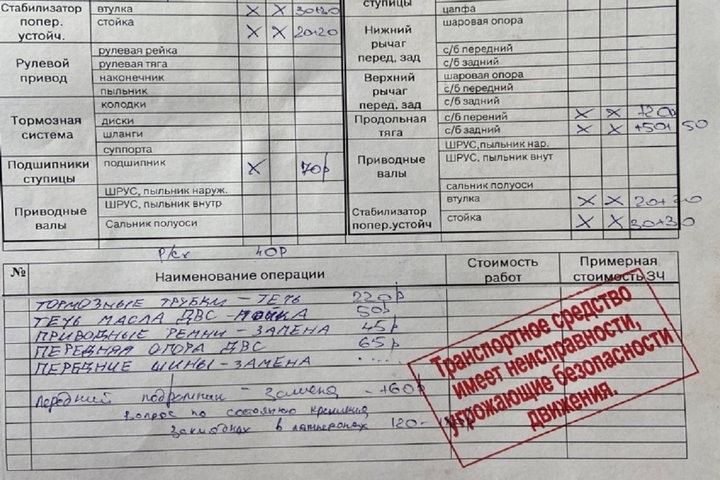 Стабилизатор попер. устойч.
втулка X X 30+30
стойка X X 20+20
Рулевой привод
рулевая рейка
рулевая тяга
наконечник
пыльник
Тормозная система
колодки
диски
шланги
суппорта
Подшипники ступицы
подшипник X 70р
Приводные валы
ШРУС, пыльник наруж.
ШРУС, пыльник внутр
Сальник полуоси
ступицы
цапфа
Нижний рычаг перед, зад
шаровая опора
с/б передний
с/б задний
Верхний рычаг перед, зад
шаровая опора
с/б передний
с/б задний
Продольная тяга
с/б перений X X 120р
с/б задний X X +50+ 50
Приводные валы
ШРУС,пыльник нар.
ШРУС, пыльник внут
сальник полуоси
Стабилизатор попер.устойч
втулка X X 20+20
стойка X X 30+30
р/ск 40р
№ Наименование операции Стоимость работ Примерная стоимость ЗЧ
ТОРМОЗНЫЕ ТРУБКИ – ТЕЧЬ 220р
ТЕЧЬ МАСЛА ДВС – МОЙКА 50р
ПРИВОДНЫЕ РЕМНИ – ЗАМЕНА 45р
ПЕРЕДНЯЯ ОПОРА ДВС 65р
ПЕРЕДНИЕ ШИНЫ – ЗАМЕНА ....
Передний подрамник – замена – +60р
вопрос по состоянию крепления
в 120-
Транспортное средство
имеет неисправности,
угрожающие безопасности
движения.